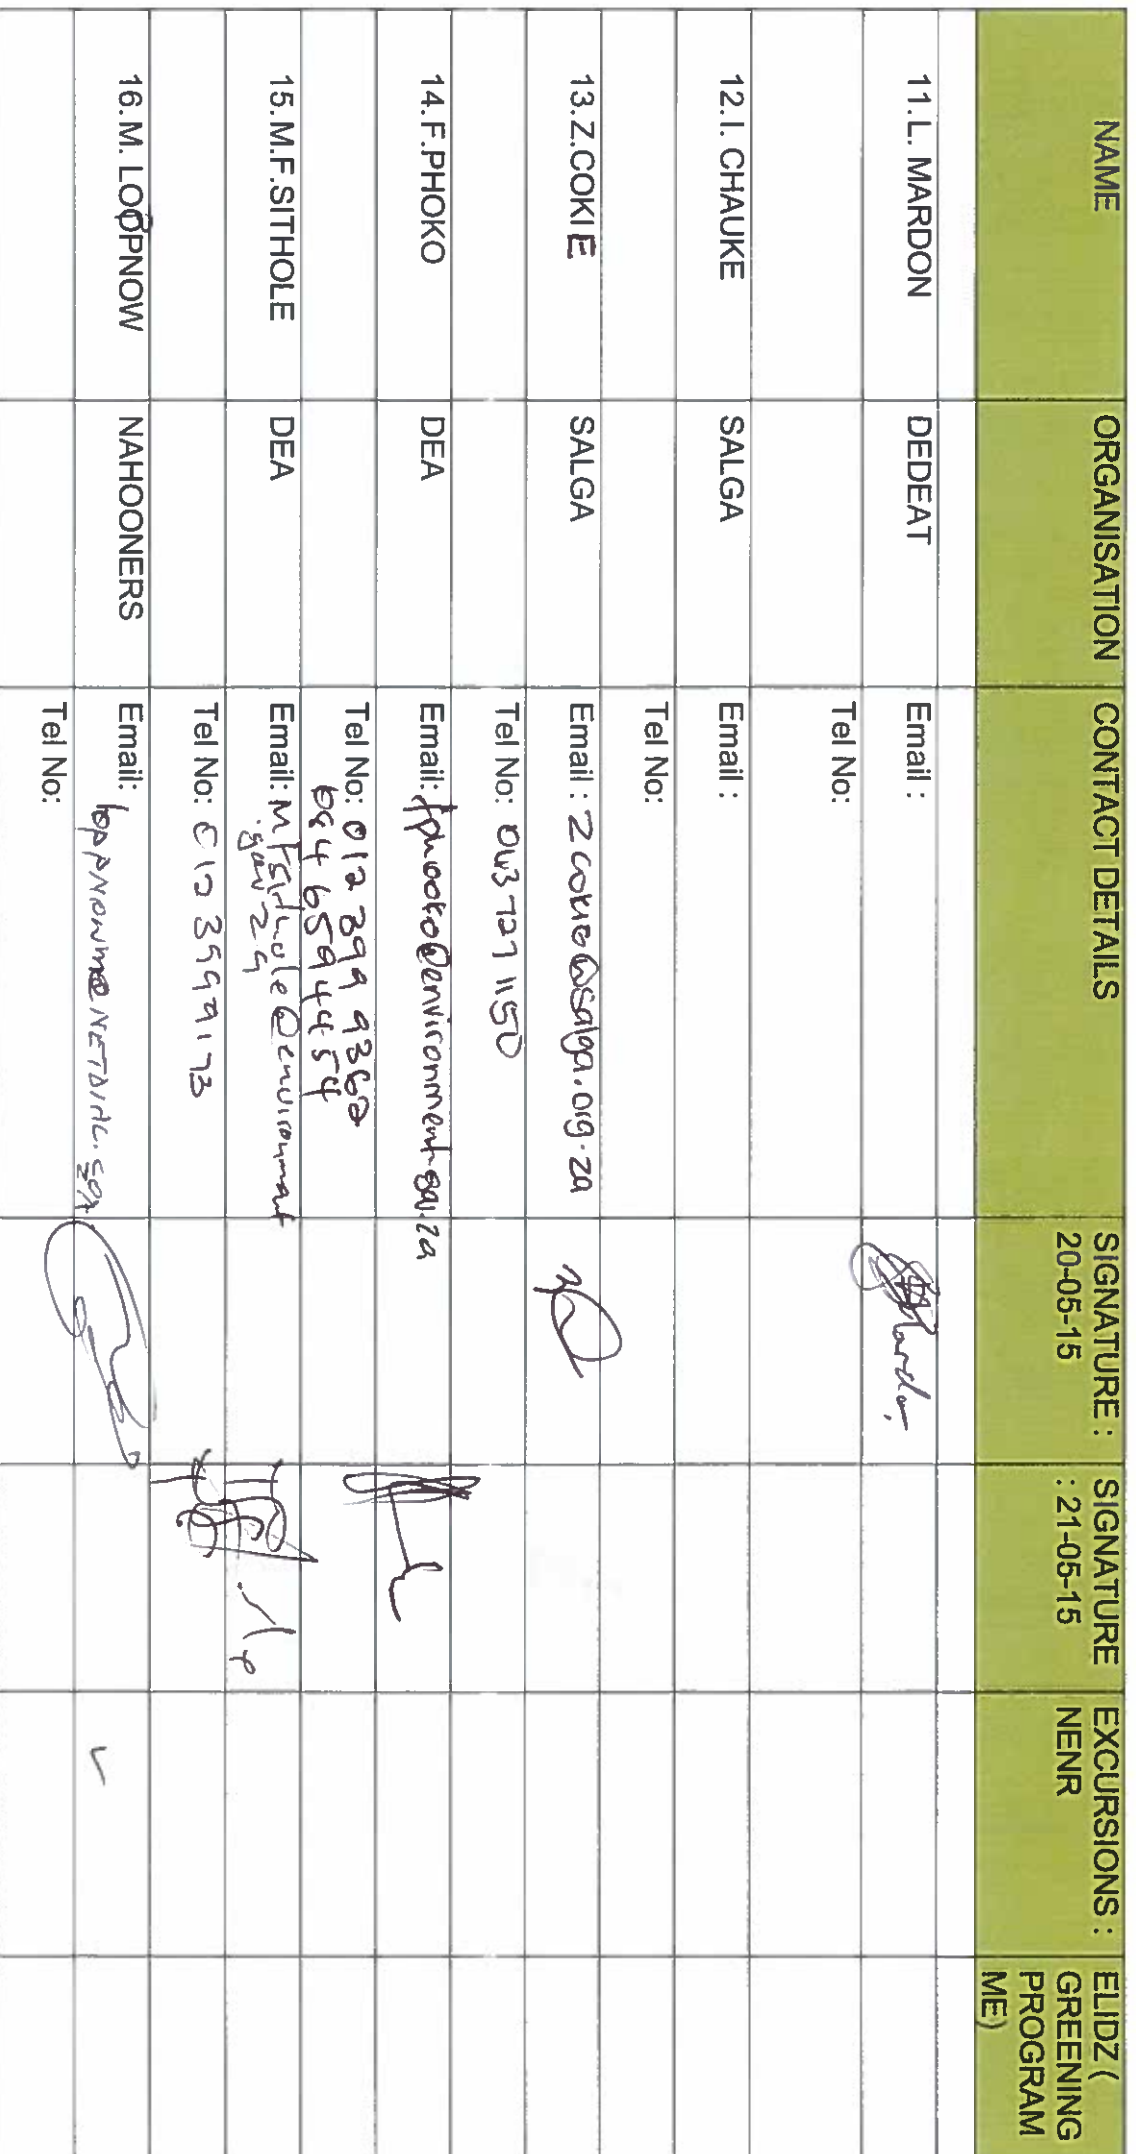 NAME
ORGANISATION
CONTACT DETAILS
SIGNATURE :
20-05-15
SIGNATURE
: 21-05-15
EXCURSIONS :
NENR
ELIDZ (
GREENING
PROGRAM
ME)
11. L. MARDON
DEDEAT
Email :
Tel No:
12. I. CHAUKE
SALGA
Email :
Tel No:
13. Z.COKIE
SALGA
Email : zcokie@salga.org.za
Tel No: 043 727 1150
14. F.PHOKO
DEA
Email:
Tel No: 012 399 9362
084 659 4454
15. M.F.SITHOLE
DEA
Email: MFSithole@environment
.gov.za
Tel No: 012 399 9173
16. M. LOPPNOW
NAHOONERS
Email:
Tel No: